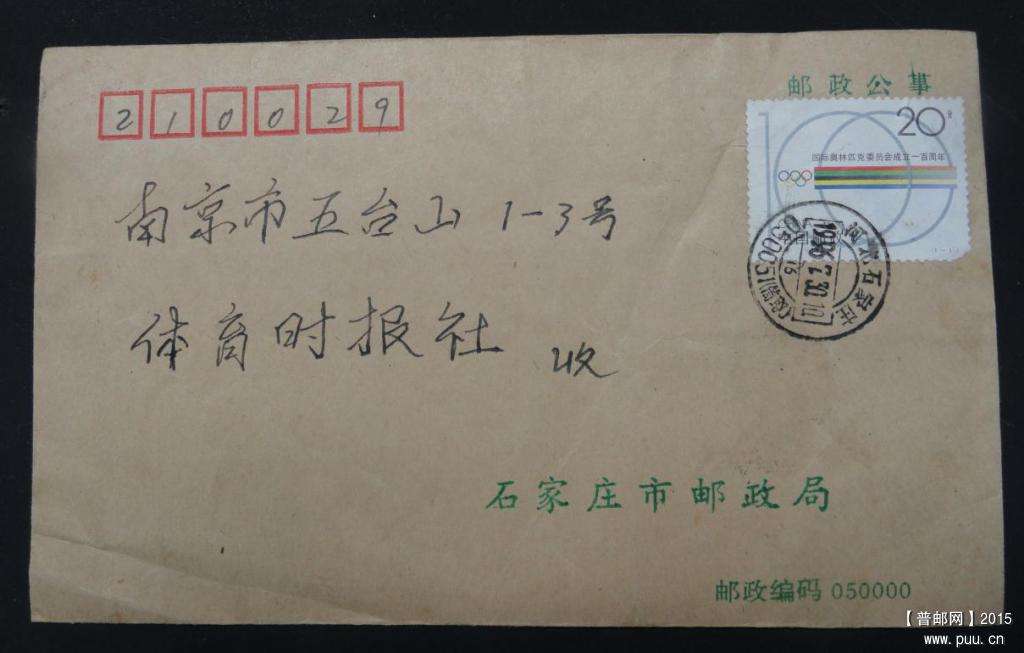 邮政公事
210029
20分
国际奥林匹克委员会成立一百周年
南京市五台山 1-3号
河北石家庄
体育时报社 收
石家庄市邮政局
邮政编码 050000
【普邮网】2015
www.puu.cn